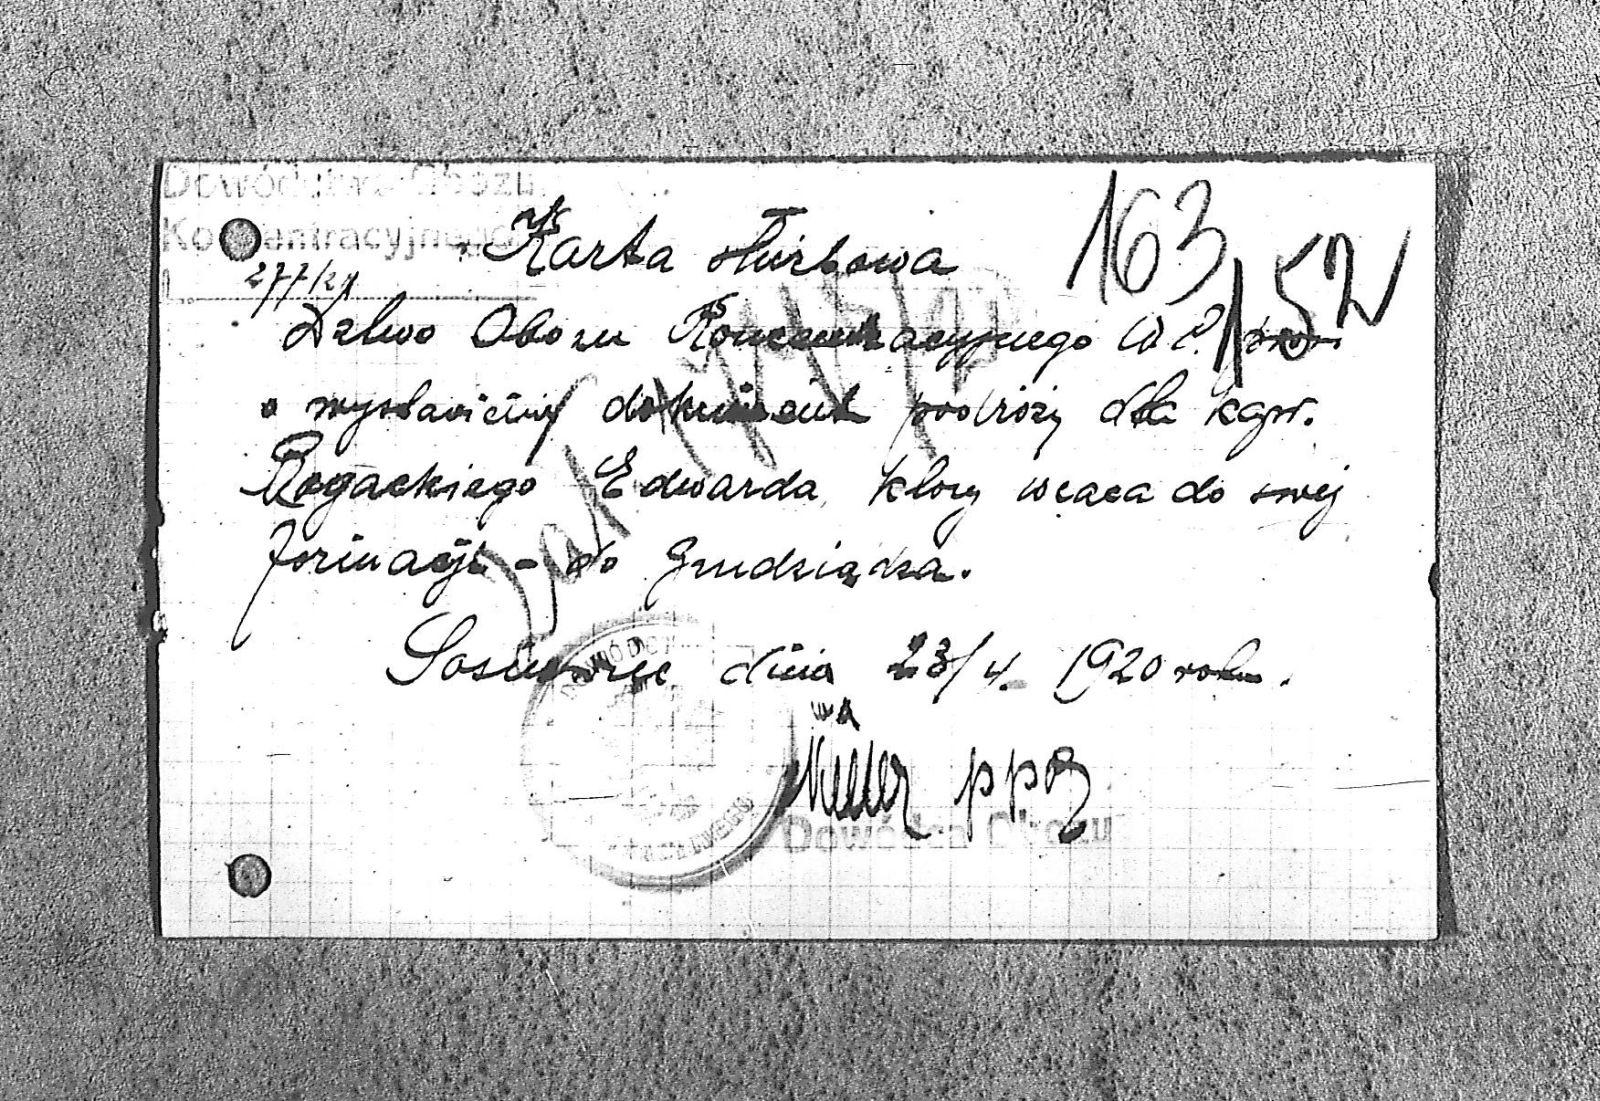 Dowództwo Obozu
Koncentracyjnego
L. 277/20
163/52
Karta służbowa
Dztwo Obozu Koncentracyjnego W.P. prosi
o wystawienie dokument podróży dla kapr.
Rogackiego Edwarda, który wraca do swej
formacji - do Grudziądza.
Sosnowiec dnia 23/4. 1920 roku.
DOWÓDCY
Miller ppor
Dowódca Obozu